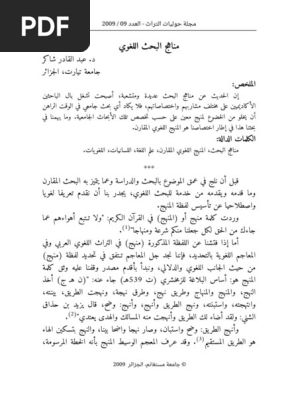 PDF
مجلة حوليات التراث - العدد 09 / 2009
مناهج البحث اللغوي
د. عبد القادر شاكر
جامعة تيارت، الجزائر
الملخص:
إن الحديث عن مناهج البحث عديدة ومتشعبة، أصبحت تشغل بال الباحثين
الأكاديميين على مختلف مشاربهم واختصاصاتهم، فلا يكاد أي بحث جامعي في الوقت الراهن
أن يخلو من الخضوع لمنهج معين على حسب تخصص تلك الأبحاث الجامعية. وما يهمنا في
بحثنا هذا في إطار اختصاصنا هو المنهج اللغوي المقارن.
الكلمات الدالة:
مناهج البحث، المنهج اللغوي المقارن، علم اللغة، اللسانيات، اللغويات.
***
قبل أن نلج في عمق الموضوع بالبحث والدراسة وعما يتميز به البحث المقارن
وما قدمه ويقدمه من خدمة للبحث اللغوي، يجدر بنا أن نقدم تعريفا لغويا
واصطلاحيا عن تأسيس لفظة المنهج.
وردت كلمة منهج أو (المنهاج) في القرآن الكريم: "ولا تتبع أهواءهم عما
جاءك من الحق لكل جعلنا منكم شرعة ومنهاجا"(1).
أما إذا فتشنا عن اللفظة المذكورة (منهج) في التراث اللغوي العربي وفي
المعاجم اللغوية بالتحديد، فإننا نجد جل المعاجم تتفق في تحديد لفظة (منهج)
من حيث الجانب اللغوي والدلالي، ونبدأ بأقدم مصدر وقفنا عليه وفي كلمة
المنهج هو: أساس البلاغة للزمخشري (ت 539هـ) جاء عنه: "(ن هـ ج) أخذ
النهج، والمنهج والمنهاج وطريق نهج، وطرق نهجة، ونهجت الطريق، بينته،
وانتهجته، واستبنته، ونهج الطريق وأنهج، وأنهج: وضح، قال يزيد بن حذاق
الشني: ولقد أضاء لك الطريق وأنهجت منه المسالك والهدى يعتدي"(2).
وأنهج الطريق: وضح واستبان، وصار نهجا واضحا بينا، والنهج بتسكين الهاء
هو الطريق المستقيم(3). وقد عرف المعجم الوسيط المنهج بأنه الخطة المرسومة،
© جامعة مستغانم، الجزائر 2009